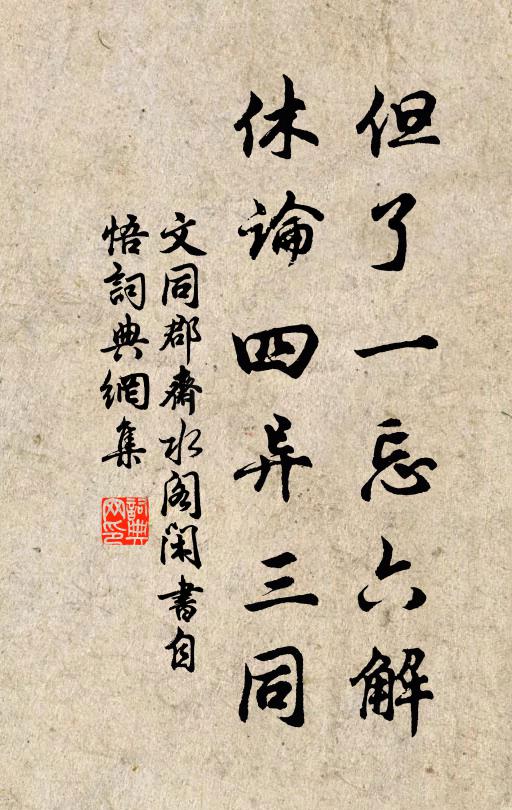 但了一忘六解
休論四异三同
文同郡齋水阁闲書自
悟詞典網集
詞典
网印